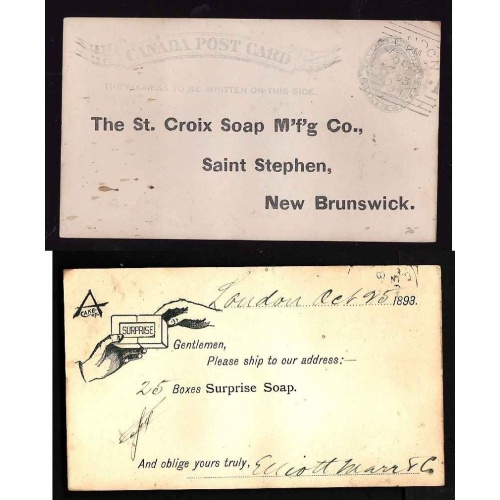 CANADA POST CARD
THE ADDRESS TO BE WRITTEN ON THIS SIDE.
The St. Croix Soap M'f'g Co.,
Saint Stephen,
New Brunswick.
London Oct 25 1893.
A
CAKE
SURPRISE
Gentlemen,
Please ship to our address:—
25 Boxes Surprise Soap.
And oblige yours truly, Elliott Marr & Co